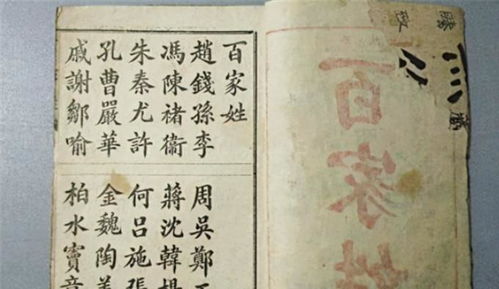 百家姓
百家姓
趙錢孫李
周吳鄭王
馮陳禇衞
蔣沈韓楊
朱秦尤許
何呂施張
孔曹嚴華
金魏陶姜
戚謝鄒喻
柏水竇章